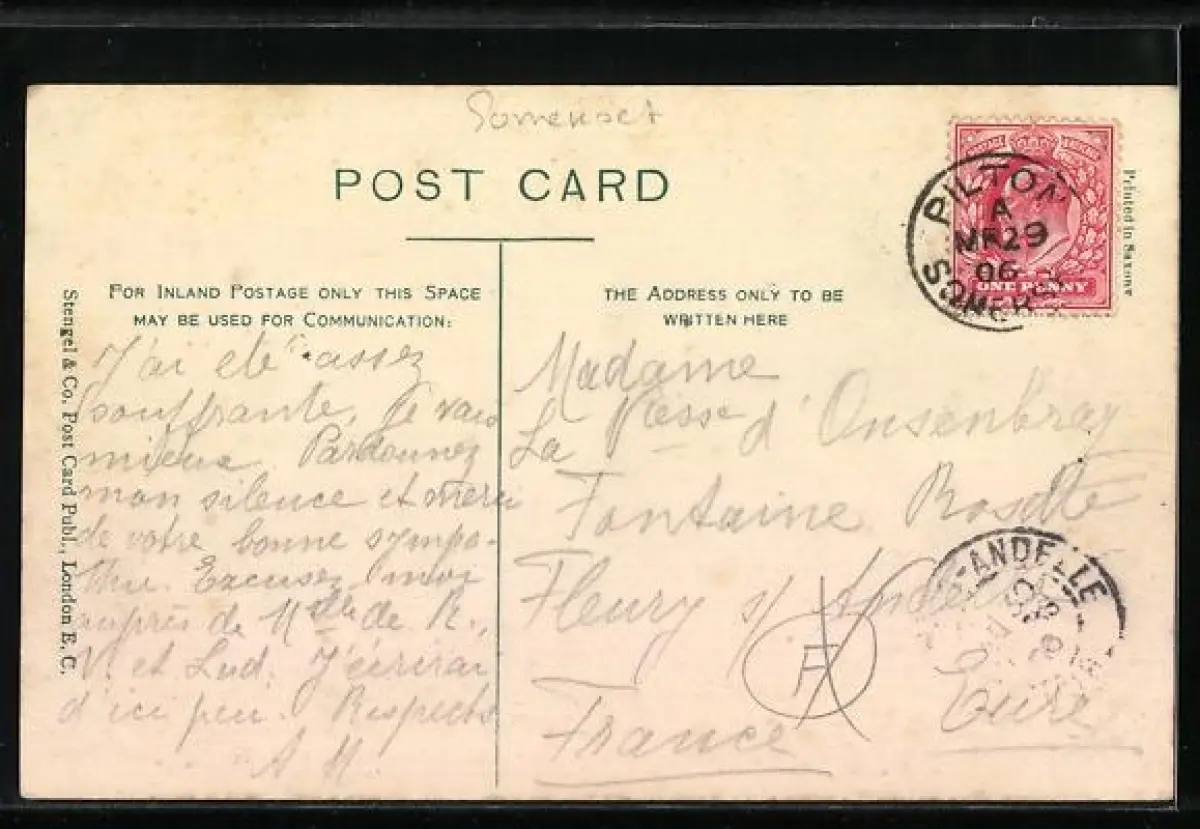 Somerset
POST CARD
FOR INLAND POSTAGE ONLY THIS SPACE
MAY BE USED FOR COMMUNICATION:
THE ADDRESS ONLY TO BE
WRITTEN HERE
PILTON
A
MR 29
06
SOMERS
ONE PENNY
Printed in Saxony
Stengel & Co. Post Card Publ., London E. C.
J'ai été assez
souffrante. Je vais
mieux. Pardonnez
mon silence et merci
de votre bonne sympa-
thie. Excusez moi
auprès de Mdlle de R.,
V. et Lud. J'écrirai
d'ici peu. Respects
A M
Madame
La Vesse d'Onsenbray
Fontaine
Fleury s/ Andelle
Eure
France
ANDELLE